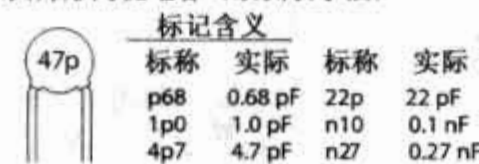 标记含义
47p
标称 实际 标称 实际
p68 0.68 pF 22p 22 pF
1p0 1.0 pF n10 0.1 nF
4p7 4.7 pF n27 0.27 nF